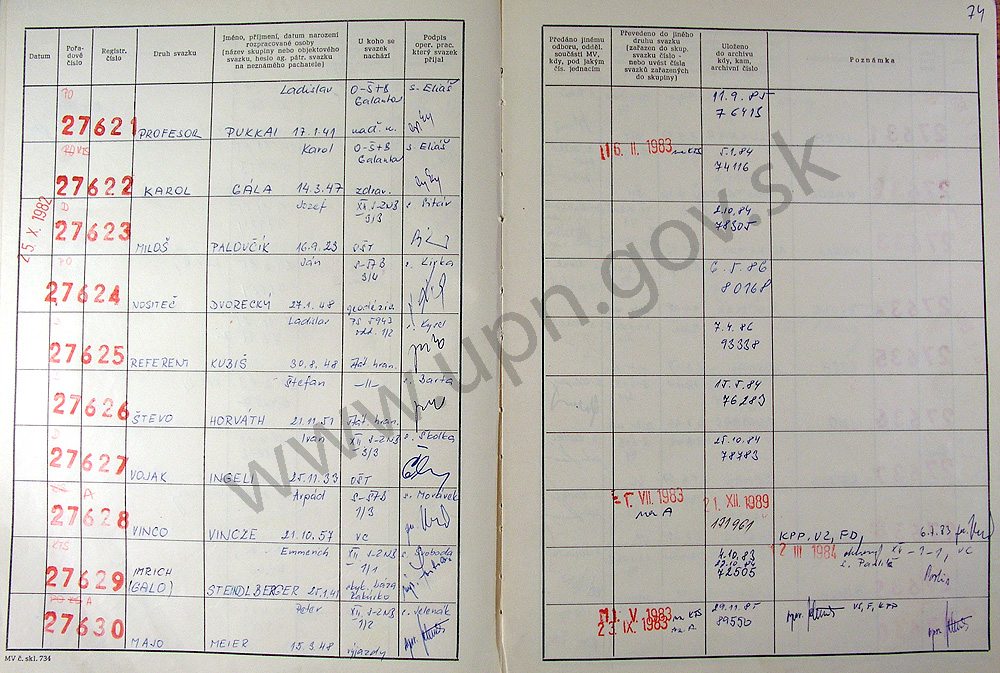 74
Datum
Pořa-
dové
číslo
Registr.
číslo
Druh svazku
Jméno, příjmení, datum narození
rozpracované osoby
(název skupiny nebo objektového
svazku, heslo ag. pátr. svazku
na neznámého pachatele)
U koho se
svazek
nachází
Podpis
oper. prac.
který svazek
přijal
Předáno jinému
odboru, odděl.
součásti MV,
kdy, pod jakým
čís. jednacím
Převedeno do jiného
druhu svazku
(zařazen do skup.
svazku číslo -
nebo uvést čísla
svazků zařazených
do skupiny)
Uloženo
do archivu
kdy, kam,
archivní číslo
Poznámka
25 X. 1982
27621 PROFESOR Ladislav PUKKAI 17.1.41 O-ŠtB Galanta s. Eliáš
11.9.85
76413
27622 KAROL Karol GÁLA 14.3.47 O-ŠtB Galanta zdrav. s. Eliáš
16. II. 1983 na KTS
5.1.84
74116
27623 MILOŠ Jozef PALOVČÍK 16.9.23 XII. S-ZNB 3/3 OŠT
2.10.84
78305
27624 NOSITEČ Ján DVORECKÝ 27.1.48 S-ŠTB 3/4 geodézia
6.5.86
80168
27625 REFERENT Ladislav KUBIŠ 30.8.48 PS 5943 odd. 1/2 štát. hran. s. Kyseľ
7.4.86
93338
27626 ŠTEVO Štefan HORVÁTH 21.11.51 -||- štát. hran. s. Barta
15.5.84
76283
27627 VOJAK Ivan INGELI 25.11.33 XII S-ZNB 3/3 OŠT s. Školka
25.10.84
78783
A
27628 VINCO Arpád VINCZE 21.10.57 S-ŠTB 1/3 VC s. Morávek
1. VII. 1983
na A
21. XII. 1989
KPP, VZ, FD,
KTS
27629 IMRICH (GALO) Emmerich STEINDLBERGER 25.1.41 XII. S-ZNB 1/1 s. Svoboda
4.10.83
72505
12 III 1984
A
27630 MAJO Peter MEIER 15.3.48 XII. S-ZNB 1/2 výjazdy s. Jelenák
V. 1983 na KTS
IX. 1983 na A
29.11.85
89550
MV č. skl. 734
www.upn.gov.sk